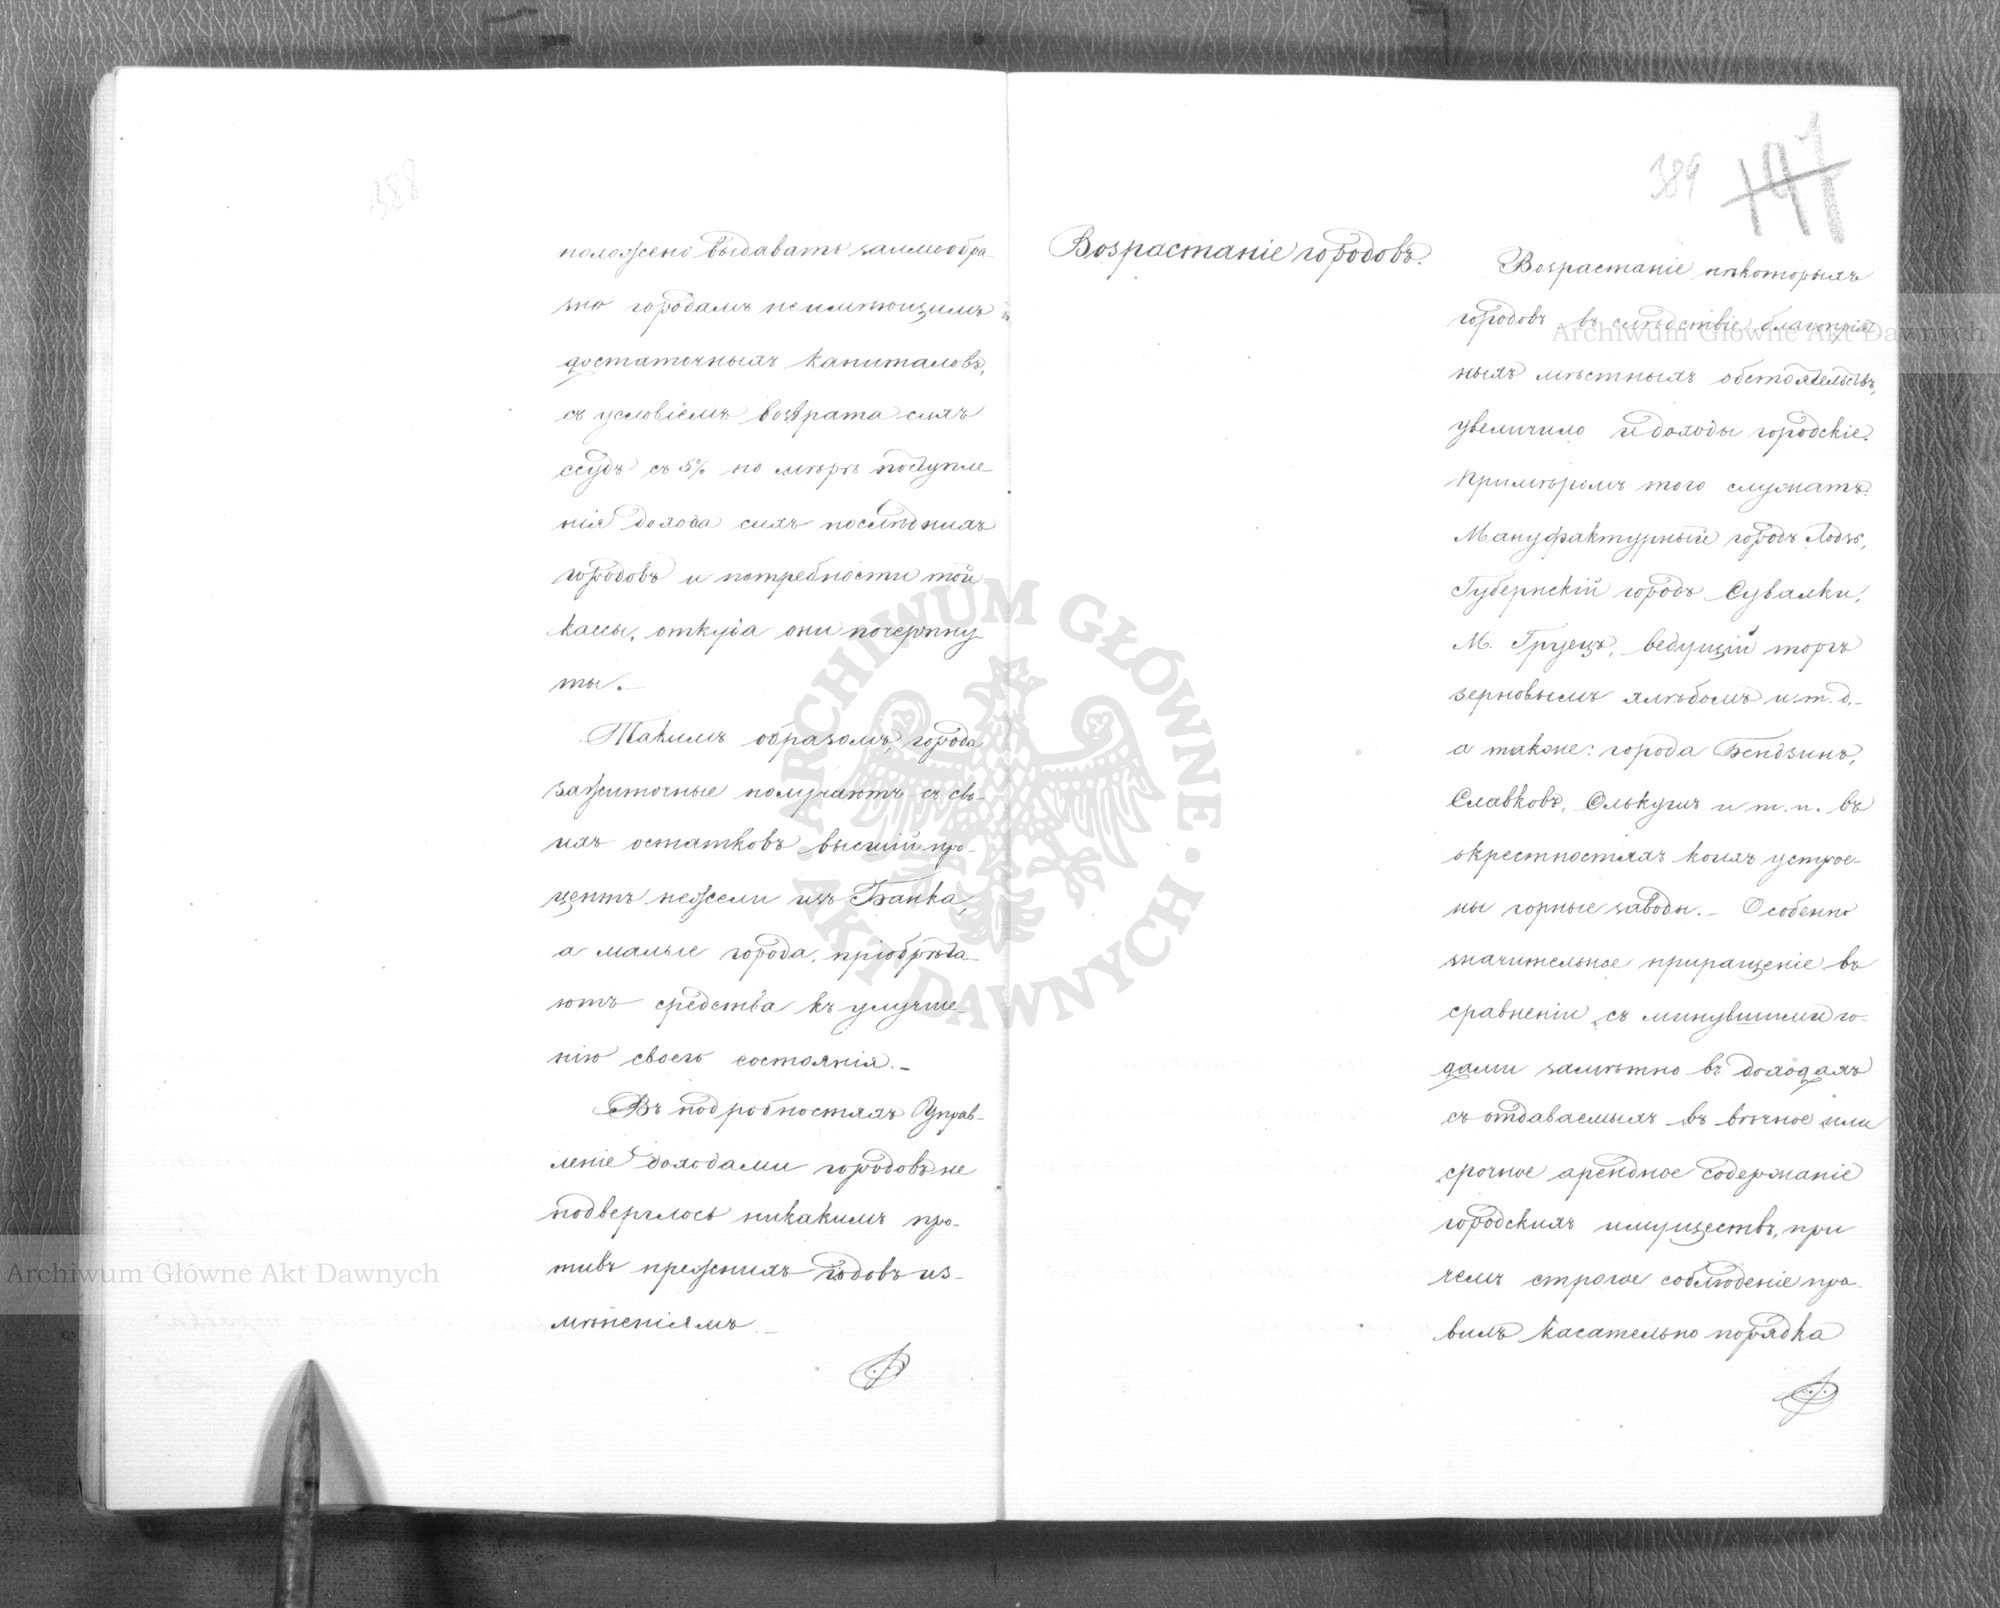 388
положено выдавать заимообра-
зно городамъ неимѣющимъ
достаточныхъ капиталовъ,
съ условіемъ возврата сихъ
ссудъ съ 5% по мѣрѣ поступле-
нія дохода сихъ послѣднихъ
городовъ и потребности той
кассы, откуда они почерпну-
ты.-
Такимъ образомъ, города
зажиточные получаютъ съ сво-
ихъ остатковъ высшій про-
центъ нежели изъ Банка,
а малые города, пріобрѣта-
ютъ средства къ улучше-
нію своего состоянія.-
Въ подробностяхъ Управ-
леніе доходами городовъ не
подверглось никакимъ про-
тивъ прежнихъ годовъ из-
мѣненіямъ.-
389 197
Возрастаніе городовъ.
Возрастаніе нѣкоторыхъ
городовъ въ слѣдствіе благопріят-
ныхъ мѣстныхъ обстоятельствъ,
увеличило и доходы городскіе.
Примѣромъ того служатъ:
Мануфактурный городъ Лодзь,
Губернскій городъ Сувалки,
М. Груецъ, ведущій торгъ
зерновымъ хлѣбомъ и т. д.-
а также: города Бендзинъ,
Славковъ, Олькушъ и т. п. въ
окрестностяхъ коихъ устрое-
ны горные заводы.- Особенно
значительное приращеніе въ
сравненіи съ минувшими го-
дами замѣтно въ доходахъ
съ отдаваемыхъ въ вѣчное или
срочное арендное содержаніе
городскихъ имуществъ, при
чемъ строгое соблюденіе пра-
вилъ касательно порядка
ARCHIWUM GŁÓWNE AKT DAWNYCH
Archiwum Główne Akt Dawnych
Archiwum Główne Akt Dawnych